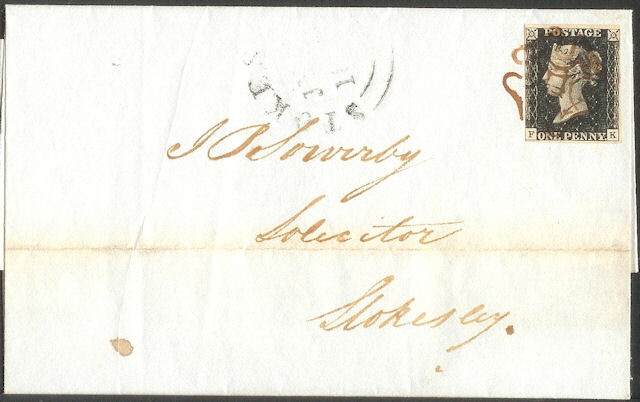 POSTAGE
F ONE PENNY K
J P Sowerby
Solicitor
Stokesley.